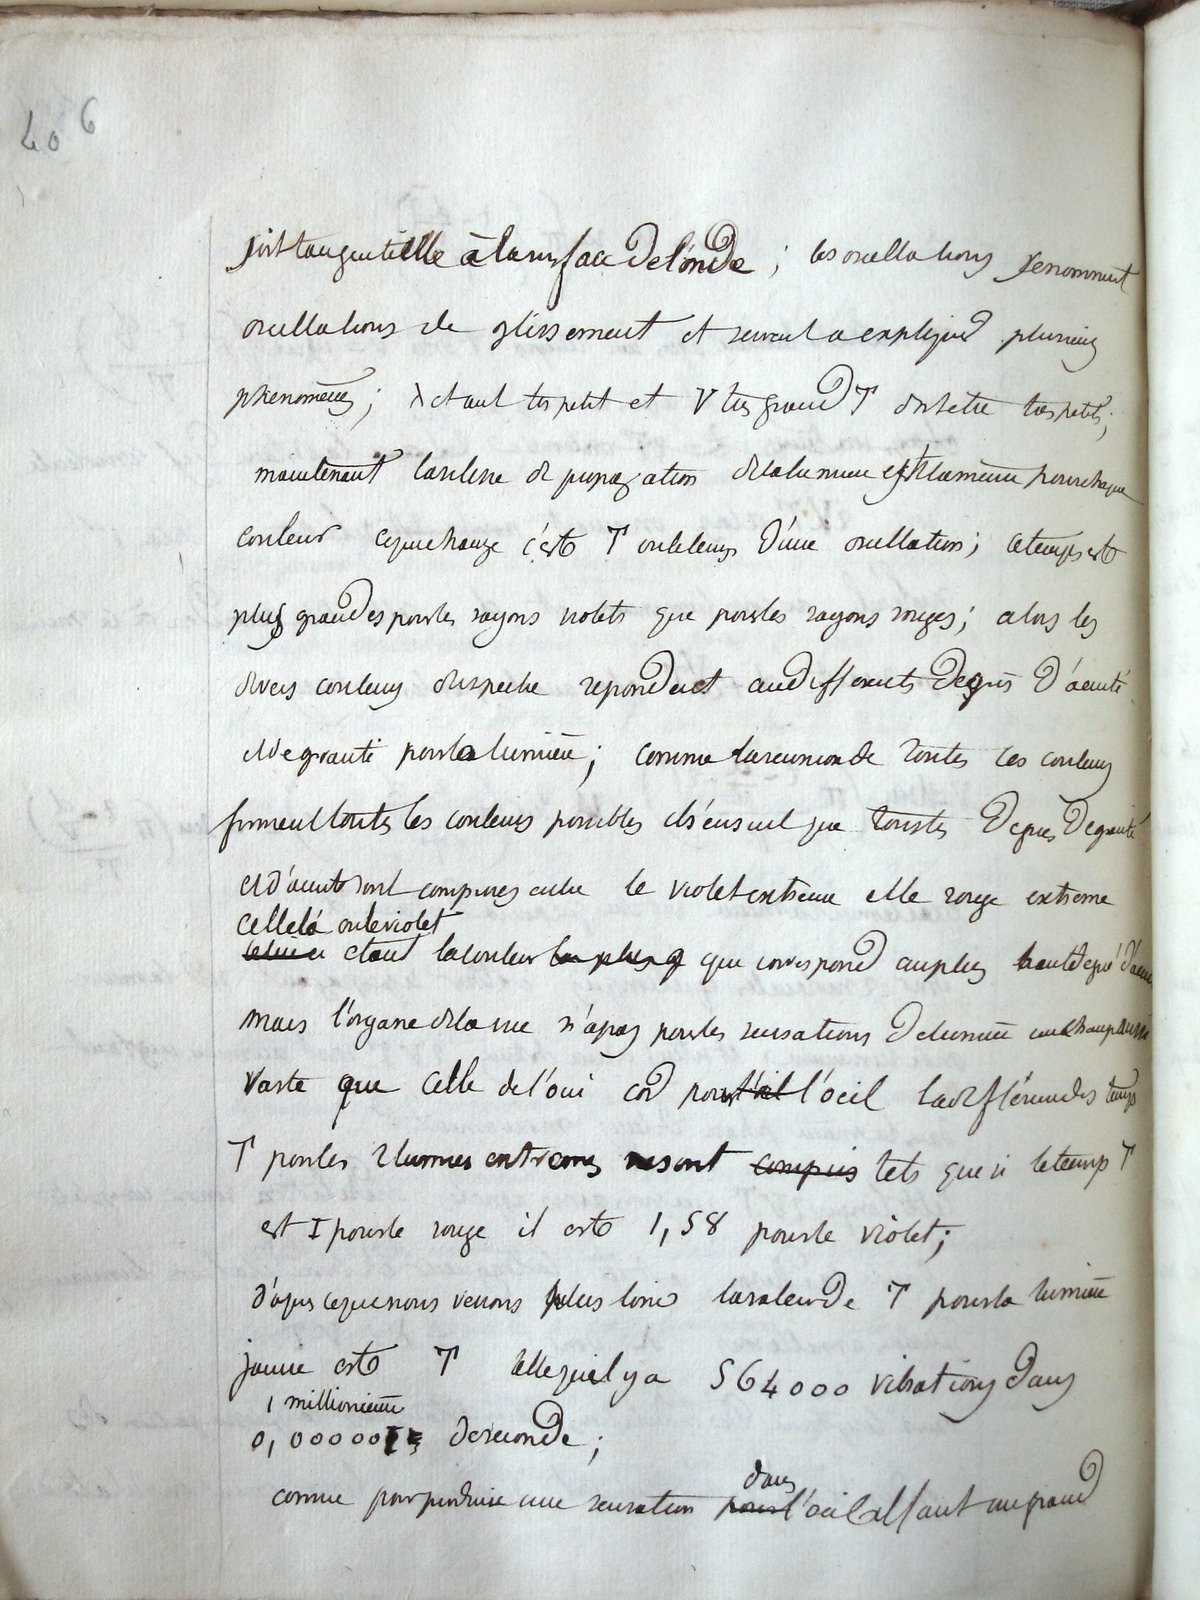 406
soit tangentielle à la surface de l'onde ; les oscillations se nomment
oscillations de glissement et servent a expliquer plusieurs
phenomènes ; λ etant tres petit et V tres grand T doit etre tres petit ;
maintenant la vitesse de propagation de la lumiere est la même pour chaque
couleur ce qui change c'est T ou le temps d'une oscillation ; ce temps est
plus grandes pour les rayons violets que pour les rayons rouges ; alors les
divers couleurs du spectre repondent aux differents degrés d'acuité
et de gravité pour la lumière ; comme la reunion de toutes ces couleurs
forment toutes les couleurs possibles il s'ensuit que tous les degres de gravité
et d'acuité sont comprises entre le violet extreme et le rouge extreme
celle là ou le violet
celui ci etant la couleur la plus g qui correspond au plus haut degré d'acuité
mais l'organe de la vue n'a pas pour les sensations de lumière un champ aussi
vaste que celle de l'oui car pour l'œil l'oeil la différence des temps
T pour les lumieres extremes sont compris tels que si le temps T
est 1 pour le rouge il est 1,58 pour le violet ;
d'après ce que nous verrons plus loin la valeur de T pour la lumière
jaune est T telle qu'il y a 564000 vibrations dans
1 millionième
0,000001 de seconde ;
dans
comme pour produire une sensation pour l'oeil il faut un grand